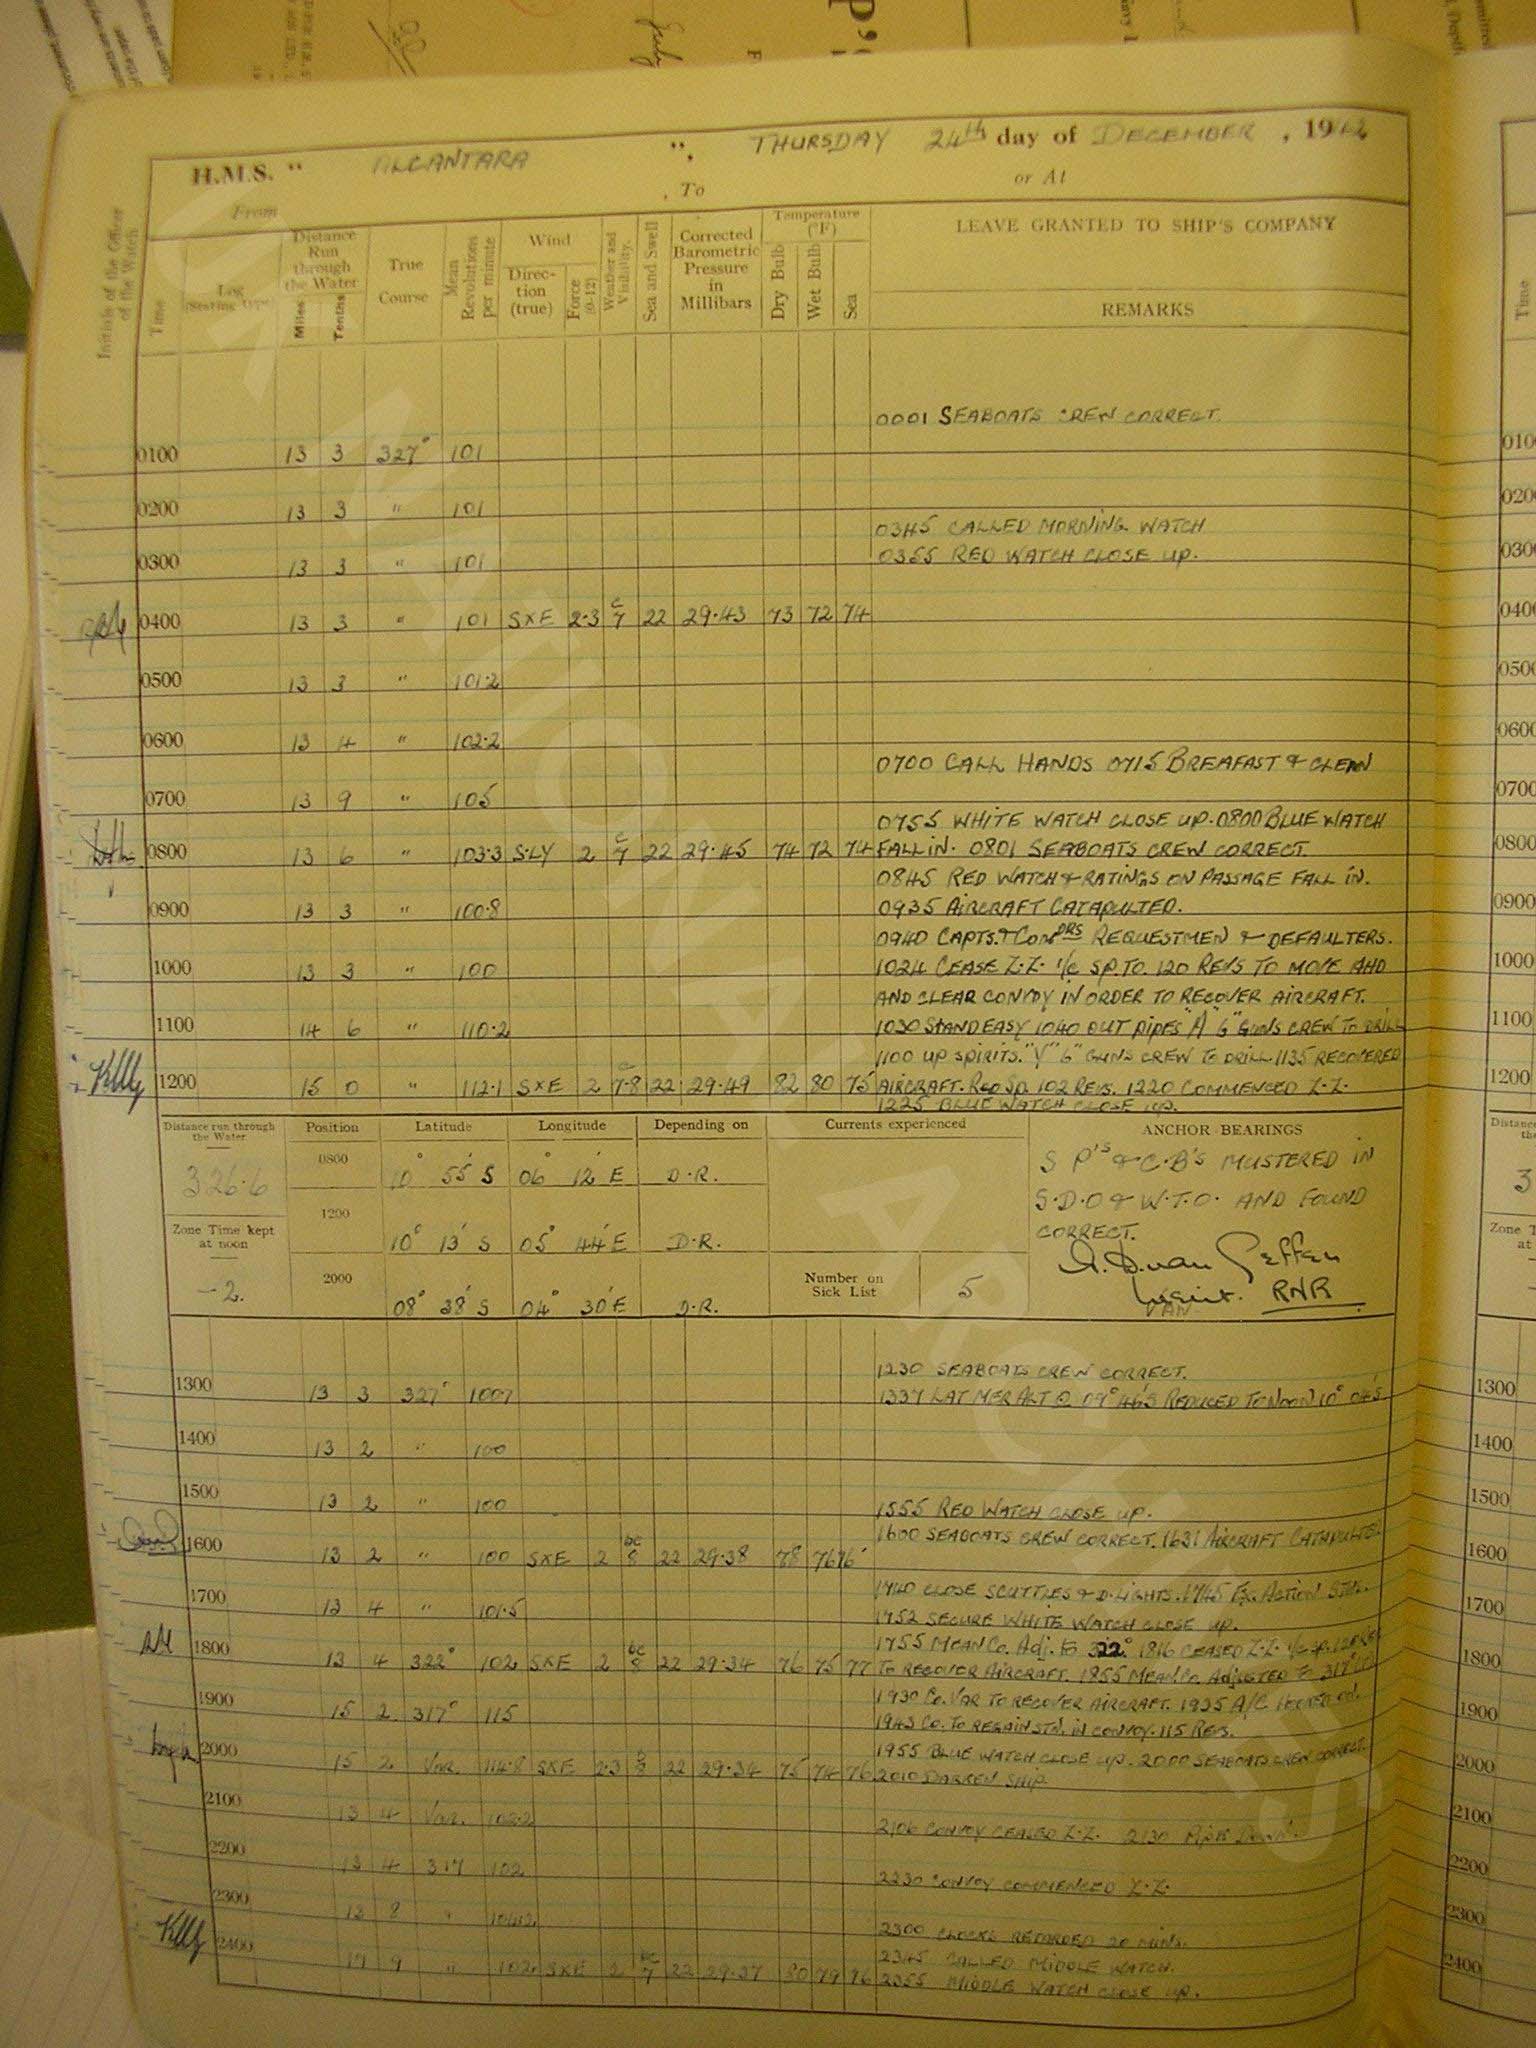 H.M.S. " ALCANTARA ", THURSDAY 24th day of DECEMBER, 1942
From , To or At
Initials of the Officer of the Watch
Time
Log (stating type)
Distance Run through the Water
Miles
Tenths
True Course
Mean Revolutions per minute
Wind
Direction (true)
Force (0-12)
Weather and Visibility.
Sea and Swell
Corrected Barometric Pressure in Millibars
Temperature (°F)
Dry Bulb
Wet Bulb
Sea
LEAVE GRANTED TO SHIP'S COMPANY
REMARKS
0001 SEABOATS CREW CORRECT.
0100 13 3 327° 101
0200 13 3 " 101
0345 CALLED MORNING WATCH
0355 RED WATCH CLOSE UP.
0300 13 3 " 101
0400 13 3 " 101 SXE 2.3 C 7 22 29.43 73 72 74
0500 13 3 " 101.2
0600 13 4 " 102.2
0700 CALL HANDS 0715 BREAFAST & CLEAN
0700 13 9 " 105
0755 WHITE WATCH CLOSE UP. 0800 BLUE WATCH
0800 13 6 " 103.3 S.LY 2 C 7 22 29.45 74 72 74 FALL IN. 0801 SEABOATS CREW CORRECT.
0845 RED WATCH & RATINGS ON PASSAGE FALL IN.
0900 13 3 " 100.8 0935 AIRCRAFT CATAPULTED.
0940 CAPTS. & COMDRS REQUESTMEN & DEFAULTERS.
1000 13 3 " 100 1024 CEASE Z.Z. I/C SP. TO. 120 REVS TO MOVE AHD
AND CLEAR CONVOY IN ORDER TO RECOVER AIRCRAFT.
1100 14 6 " 110.2 1030 STAND EASY 1040 OUT PIPES "A" 6" GUNS CREW TO DRILL
1100 UP SPIRITS. "Y" 6" GUNS CREW TO DRILL 1135 RECOVERED
1200 15 0 " 112.1 SXE 2 C 7-8 22 29.49 82 80 75 AIRCRAFT. RED SP. 102 REVS. 1220 COMMENCED Z.Z.
1225 BLUE WATCH CLOSE UP.
Distance run through the Water
326.6
Zone Time kept at noon
-2.
Position Latitude Longitude Depending on
0800 10° 55' S 06° 12' E D.R.
1200 10° 13' S 05° 44' E D.R.
2000 08° 38' S 04° 30' E D.R.
Currents experienced
Number on Sick List 5
ANCHOR BEARINGS
S P'S & C.B'S MUSTERED IN
S.D.O & W.T.O. AND FOUND
CORRECT.
RNR
1230 SEABOATS CREW CORRECT.
1300 13 3 327° 1007 1337 LAT MER ALT 09° 46'S REDUCED TO NOON 10° 04'S
1400 13 2 " 100
1500 13 2 " 100
1555 RED WATCH CLOSE UP.
1600 13 2 " 100 SXE 2 bc 8 22 29.38 78 76 76 1600 SEABOATS CREW CORRECT. 1631 AIRCRAFT CATAPULTED
1740 CLOSE SCUTTLES & D. LIGHTS. 1745 EX. ACTION STNS.
1700 13 4 " 101.5
1752 SECURE WHITE WATCH CLOSE UP.
1755 MEAN CO. ADJ. TO 322° 1816 CEASED Z.Z. I/C SP. 120 REVS
1800 13 4 322° 102 SXE 2 bc 8 22 29.34 76 75 77 TO RECOVER AIRCRAFT. 1855 MEAN CO. ADJUSTED TO 317°
1930 CO. VAR TO RECOVER AIRCRAFT. 1935 A/C HOOKED ON.
1900 15 2 317° 115
1943 CO. TO REGAIN STN. IN CONVOY. 115 REVS.
1955 BLUE WATCH CLOSE UP. 2000 SEABOATS CREW CORRECT.
2000 15 2 VAR. 114.8 SXE 2.3 8 22 29.34 75 74 76 2010 DARKEN SHIP
2100 13 4 VAR. 102.2
2106 CONVOY CEASED Z.Z. 2130 PIPE DOWN.
2200 13 4 317 102
2230 CONVOY COMMENCED Z.Z.
2300 13 8 "
2300 CLOCKS RETARDED 20 MINS.
2345 CALLED MIDDLE WATCH.
2400 17 9 " 102 SXE 2 bc 7 22 29.37 80 79 76 2355 MIDDLE WATCH CLOSE UP.
NATIONAL ARCHIVES